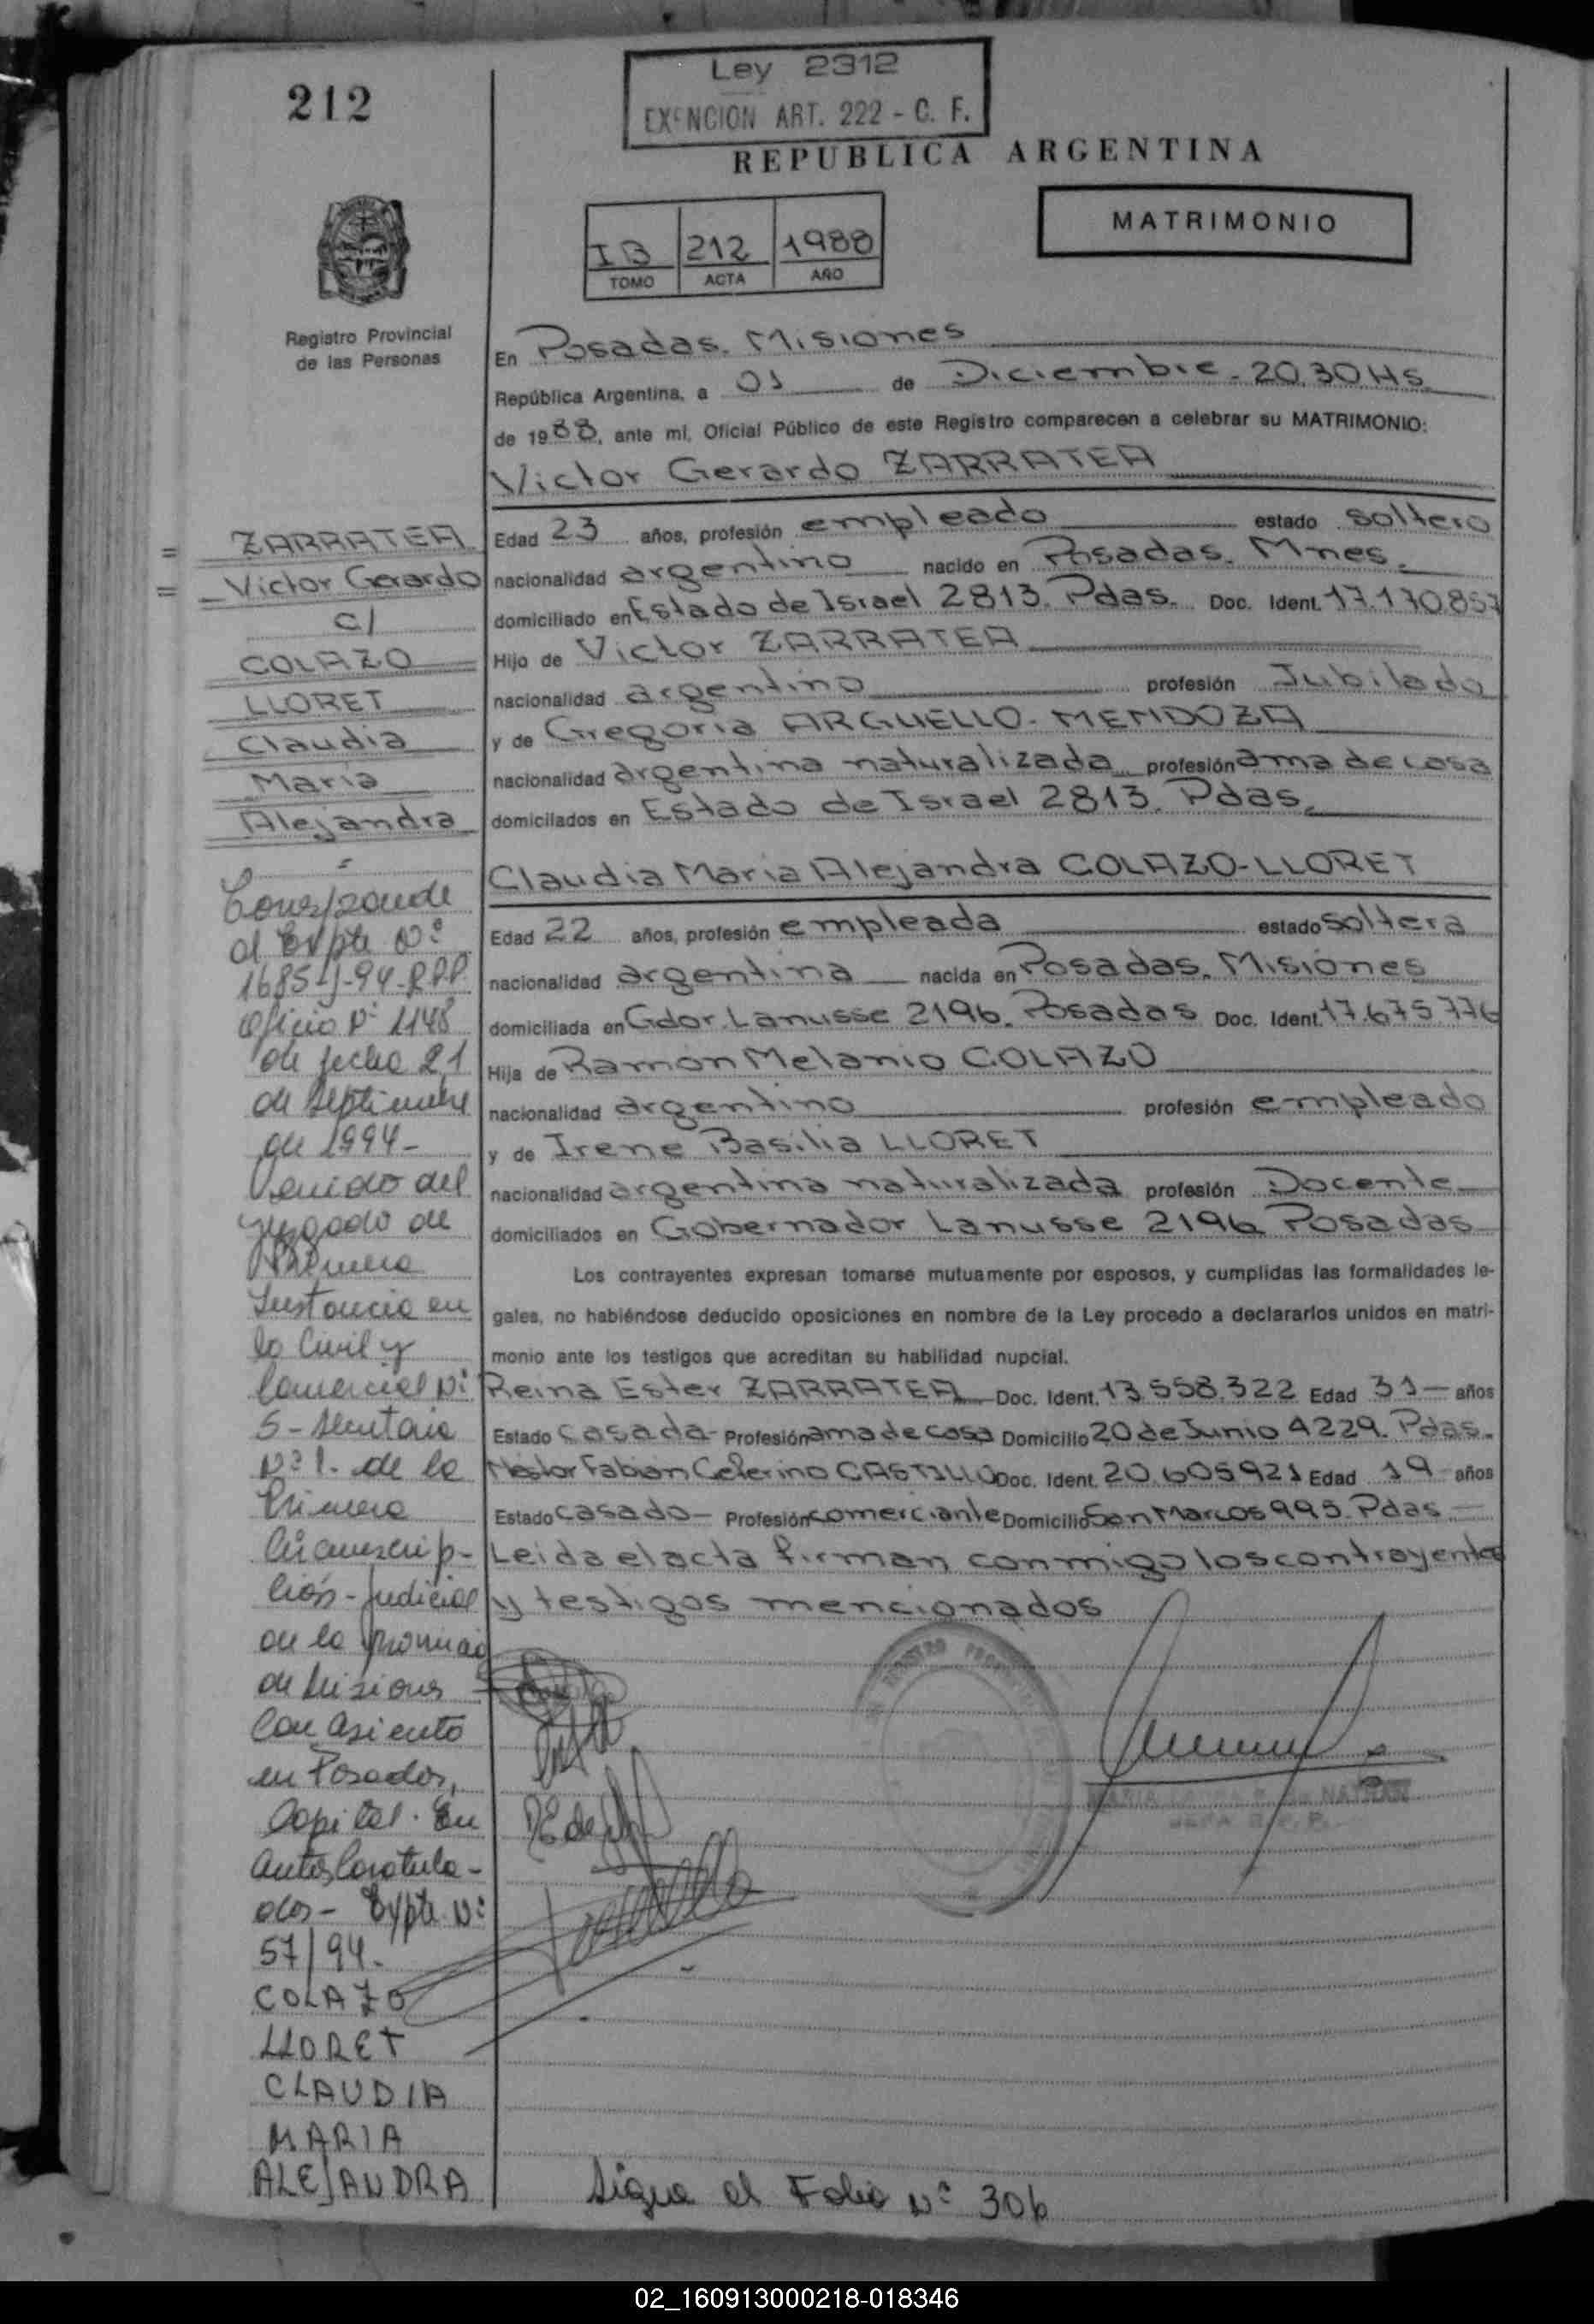 212
Ley 2312
EXENCION ART. 222 - C. F.
REPUBLICA ARGENTINA
MATRIMONIO
IB 212 1988
TOMO ACTA AÑO
Registro Provincial
de las Personas
En Posadas. Misiones
República Argentina, a 01 de Diciembre - 20.30 Hs.
de 1988, ante mi, Oficial Público de este Registro comparecen a celebrar su MATRIMONIO:
Victor Gerardo ZARRATEA
Edad 23 años, profesión empleado estado soltero
nacionalidad argentino nacido en Posadas. Mnes.
domiciliado en Estado de Israel 2813. Pdas. Doc. Ident. 17.170.857
Hijo de Victor ZARRATEA
nacionalidad argentino profesión Jubilado
y de Gregoria ARGUELLO - MENDOZA
nacionalidad argentina naturalizada profesión ama de casa
domicilados en Estado de Israel 2813. Pdas.
Claudia Maria Alejandra COLAZO-LLORET
Edad 22 años, profesión empleada estado soltera
nacionalidad argentina nacida en Posadas. Misiones
domiciliada en Gdor. Lanusse 2196. Posadas Doc. Ident. 17.675.776
Hija de Ramon Melanio COLAZO
nacionalidad argentino profesión empleado
y de Irene Basilia LLORET
nacionalidad argentina naturalizada profesión Docente
domiciliados en Gobernador Lanusse 2196 Posadas
Los contrayentes expresan tomarse mutuamente por esposos, y cumplidas las formalidades le-
gales, no habiéndose deducido oposiciones en nombre de la Ley procedo a declararlos unidos en matri-
monio ante los testigos que acreditan su habilidad nupcial.
Reina Ester ZARRATEA Doc. Ident. 13.558.322 Edad 31 años
Estado casada - Profesión ama de casa Domicilio 20 de Junio 4229. Pdas.
Nestor Fabian Ceferino CASTILLO Doc. Ident. 20.605921 Edad 19 años
Estado casado - Profesión comerciante Domicilio San Marcos 995. Pdas
Leida el acta firman conmigo los contrayentes
y testigos mencionados
= ZARRATEA
= Victor Gerardo
c/
COLAZO
LLORET
Claudia
Maria
Alejandra
=
Corresponde
al Expte Nº
1685-J-94-R.P.P.
Oficio Nº 1148
de fecha 21
de septiembre
de 1994-
Venido del
Juzgado de
Primera
Instancia en
lo Civil y
Comercial Nº
5 - Secretaria
Nº 1. de la
Primera
Circunscrip-
ción - Judicial
de la Provincia
de Misiones
Con asiento
en Posadas,
Capital. En
Autos Caratula-
dos - Expte Nº
57/94.
COLAZO
LLORET
CLAUDIA
MARIA
ALEJANDRA
Sigue al Folio Nº 306
02_160913000218-018346